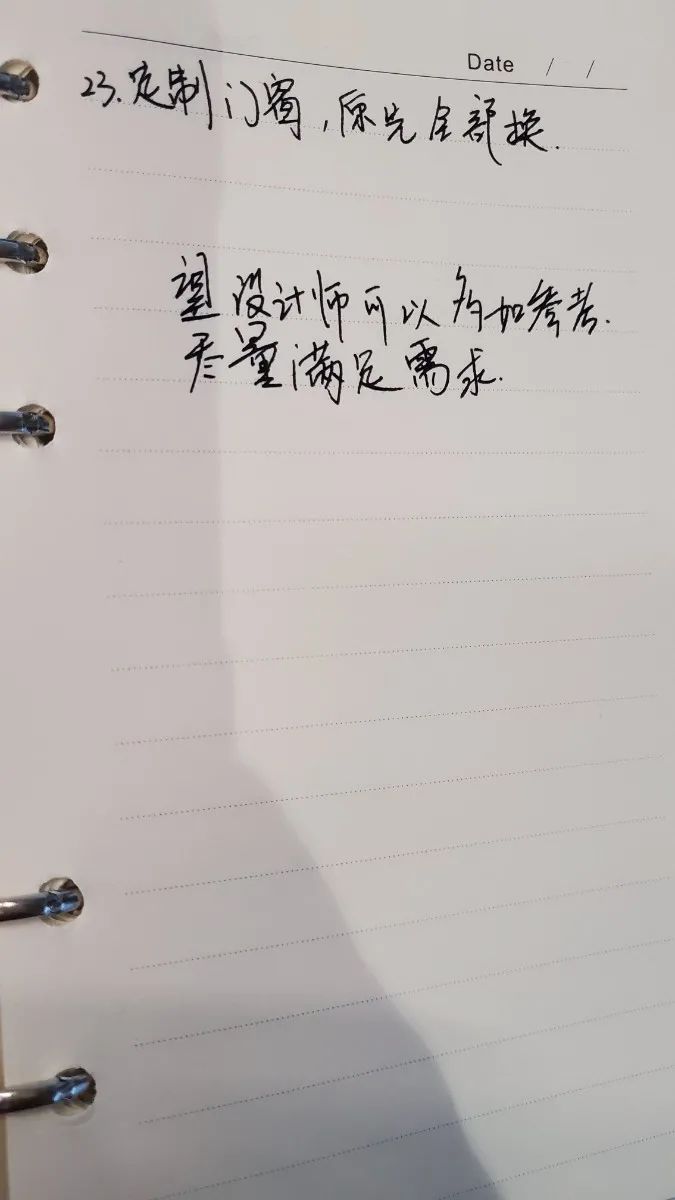 Date / /
23.定制门窗,原先全部换.
望设计师可以多加参考.
尽量满足需求.